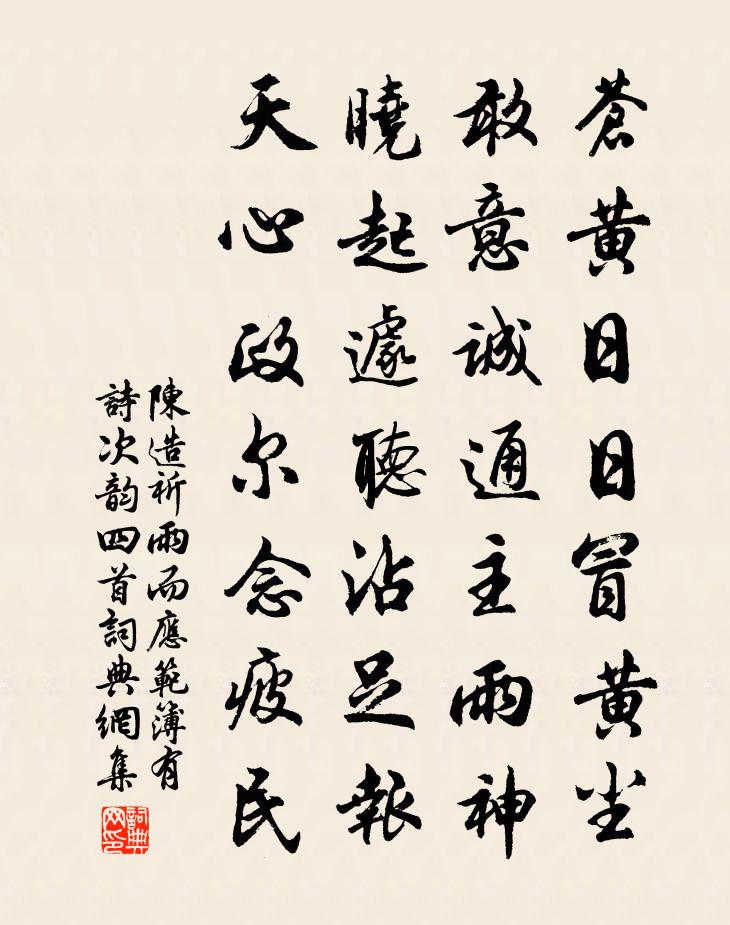 蒼黃日日冒黃尘
敢意誠通主雨神
曉起遽聽沾足報
天心政尔念疲民
陳造祈雨而應範簿有
詩次韵四首詞典網集
詞典网印